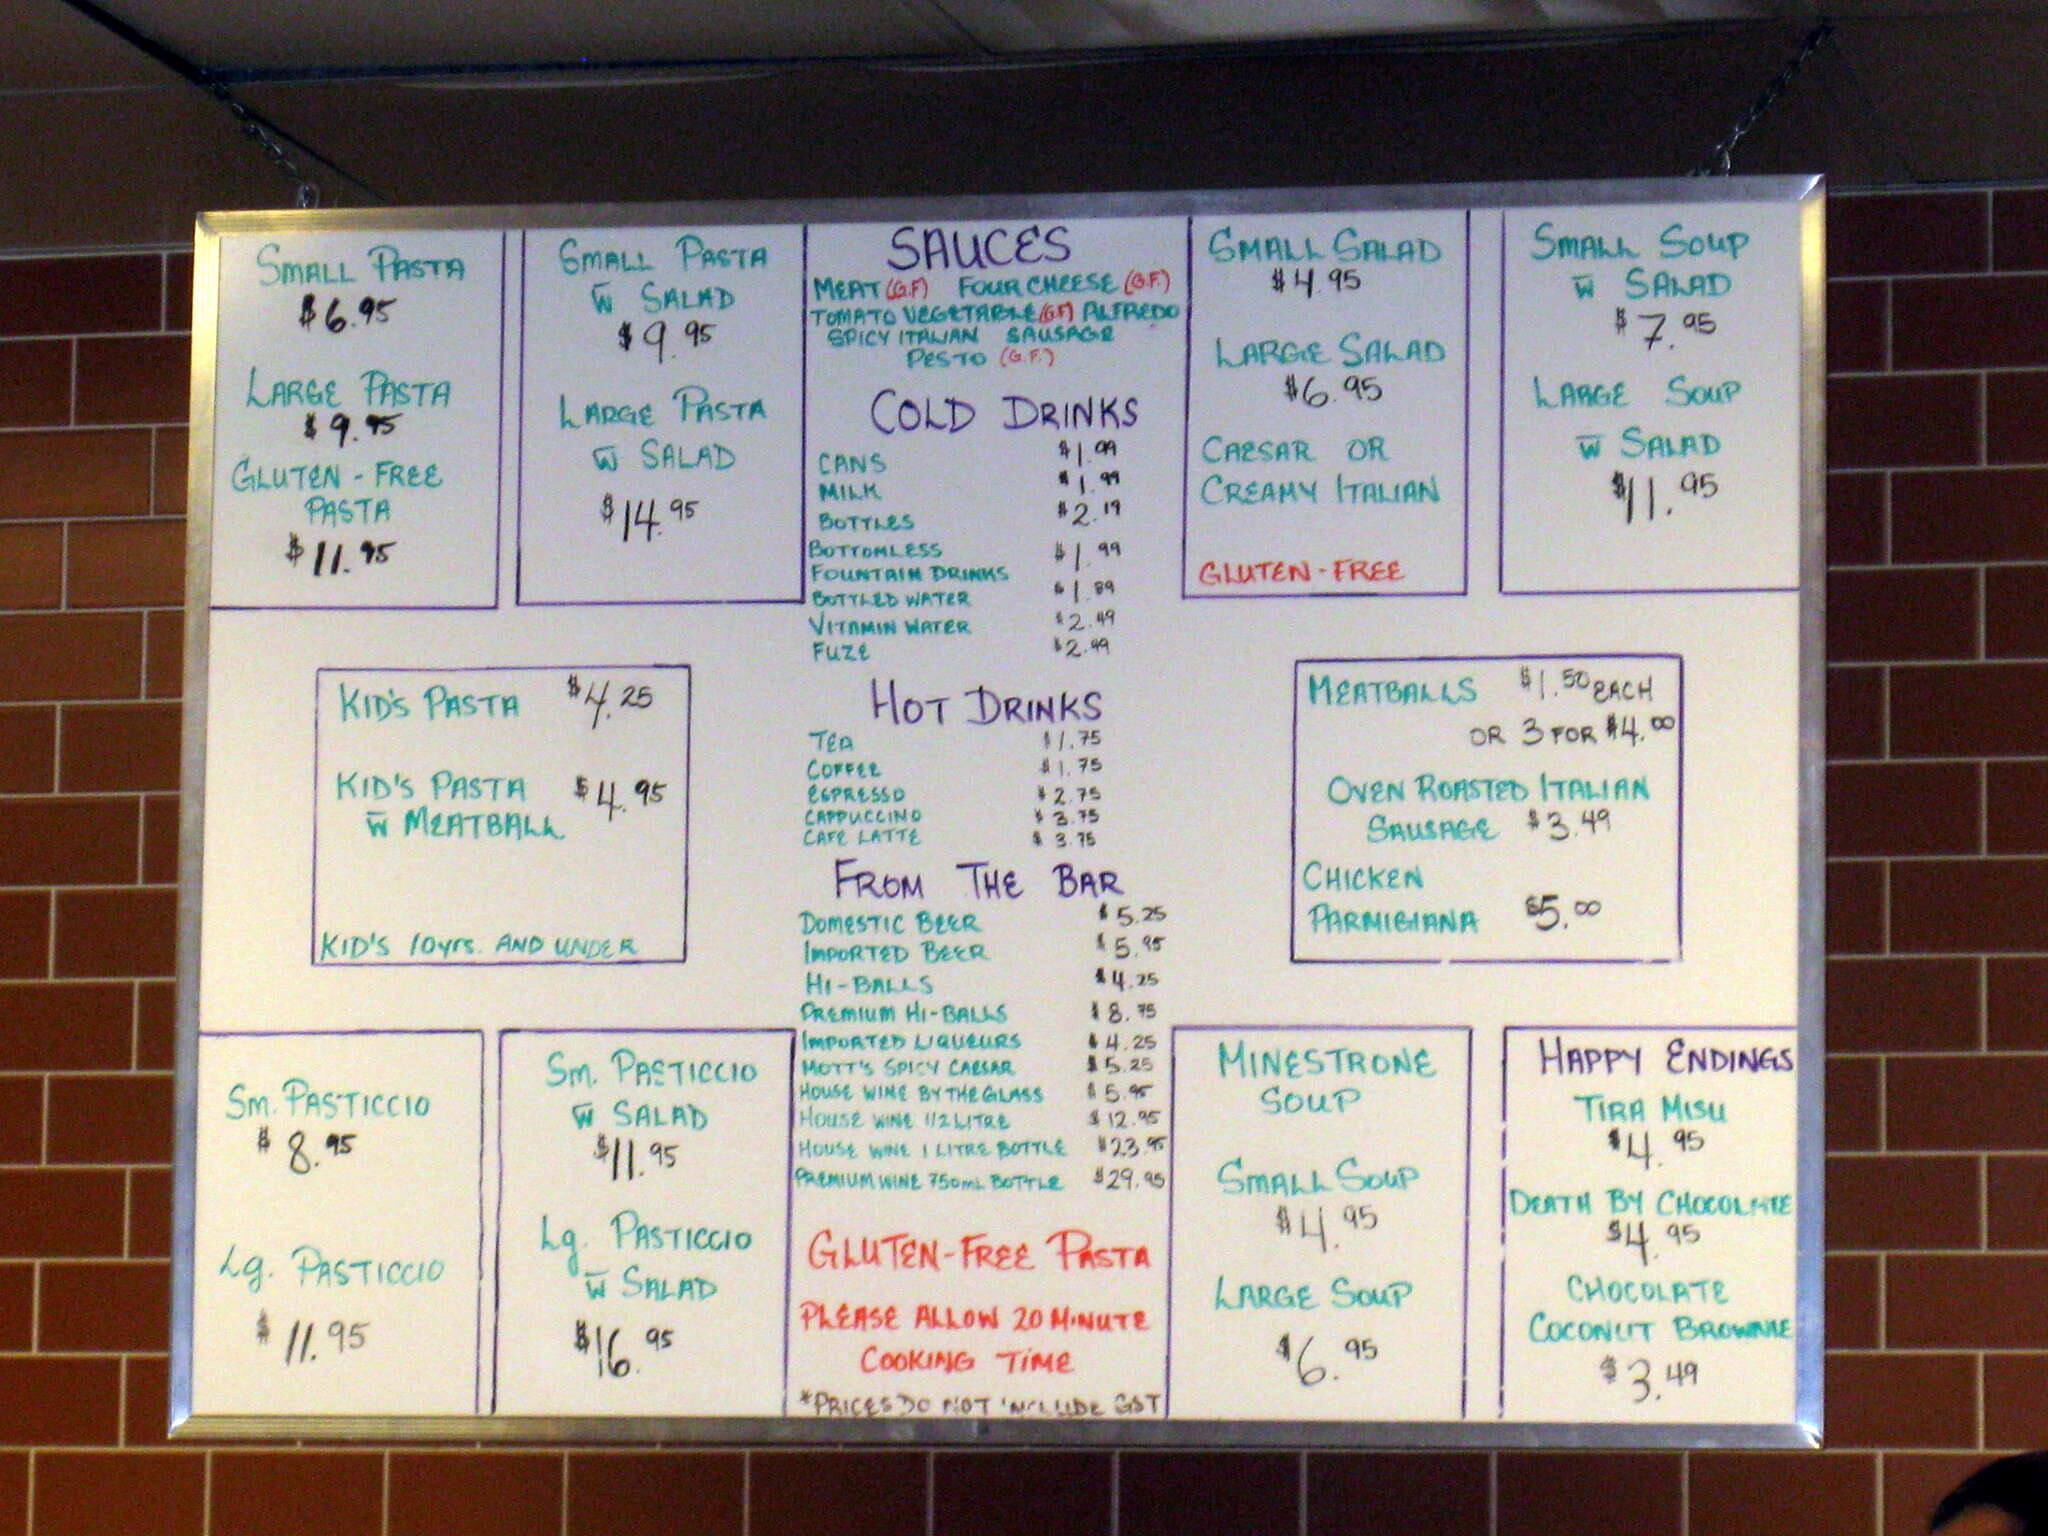 SMALL PASTA
$6.95
LARGE PASTA
$9.95
GLUTEN-FREE
PASTA
$11.95
SMALL PASTA
W̅ SALAD
$9.95
LARGE PASTA
W̅ SALAD
$14.95
SAUCES
MEAT (G.F) FOUR CHEESE (G.F.)
TOMATO VEGETABLE (G.F) ALFREDO
SPICY ITALIAN SAUSAGE
PESTO (G.F.)
COLD DRINKS
CANS $1.99
MILK $1.99
BOTTLES $2.19
BOTTOMLESS
FOUNTAIN DRINKS $1.99
BOTTLED WATER $1.89
VITAMIN WATER $2.49
FUZE $2.49
HOT DRINKS
TEA $1.75
COFFEE $1.75
ESPRESSO $2.75
CAPPUCCINO $3.75
CAFE LATTE $3.75
FROM THE BAR
DOMESTIC BEER $5.25
IMPORTED BEER $5.95
HI-BALLS $4.25
PREMIUM HI-BALLS $8.75
IMPORTED LIQUEURS $4.25
MOTT'S SPICY CAESAR $5.25
HOUSE WINE BY THE GLASS $5.95
HOUSE WINE 1/2 LITRE $12.95
HOUSE WINE 1 LITRE BOTTLE $23.95
PREMIUM WINE 750mL BOTTLE $29.95
GLUTEN-FREE PASTA
PLEASE ALLOW 20 MINUTE
COOKING TIME
*PRICES DO NOT INCLUDE GST
SMALL SALAD
$4.95
LARGE SALAD
$6.95
CAESAR OR
CREAMY ITALIAN
GLUTEN-FREE
SMALL SOUP
W̅ SALAD
$7.95
LARGE SOUP
W̅ SALAD
$11.95
KID'S PASTA $4.25
KID'S PASTA $4.95
W̅ MEATBALL
KID'S 10yrs. AND UNDER
MEATBALLS $1.50 EACH
OR 3 FOR $4.00
OVEN ROASTED ITALIAN
SAUSAGE $3.49
CHICKEN
PARMIGIANA $5.00
Sm. PASTICCIO
$8.95
Lg. PASTICCIO
$11.95
Sm. PASTICCIO
W̅ SALAD
$11.95
Lg. PASTICCIO
W̅ SALAD
$16.95
MINESTRONE
SOUP
SMALL SOUP
$4.95
LARGE SOUP
$6.95
HAPPY ENDINGS
TIRA MISU
$4.95
DEATH BY CHOCOLATE
$4.95
CHOCOLATE
COCONUT BROWNIE
$3.49